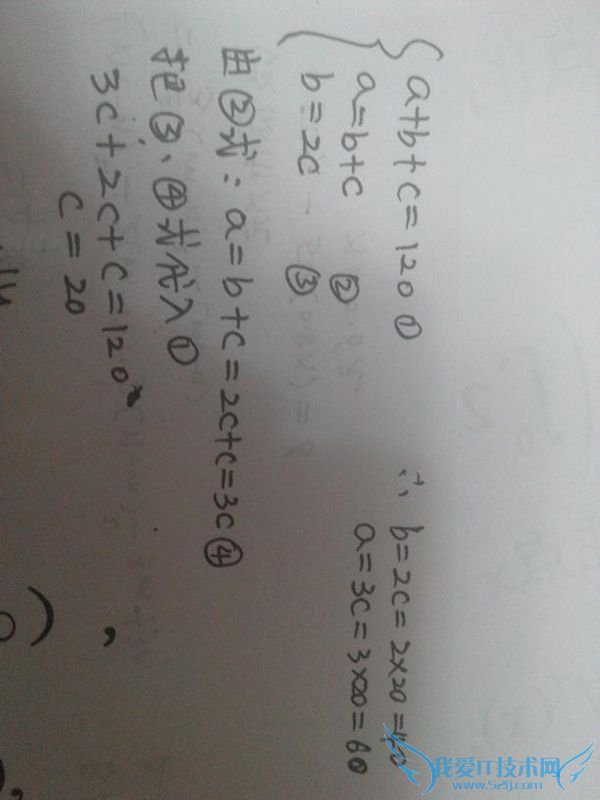 a+b+c=120 ①
a=b+c ②
b=2c ③
由②式: a=b+c=2c+c=3c ④
把③、④式代入①
3c+2c+c=120
c=20
∴ b=2c=2×20=40
a=3c=3×20=60
我爱IT技术网
www.52ij.com